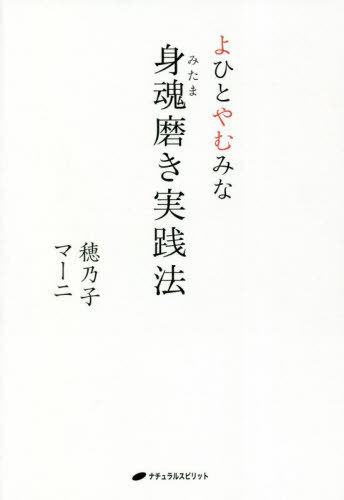 よひとやむみな
みたま
身魂磨き実践法
穂乃子
マーニ
ナチュラルスピリット